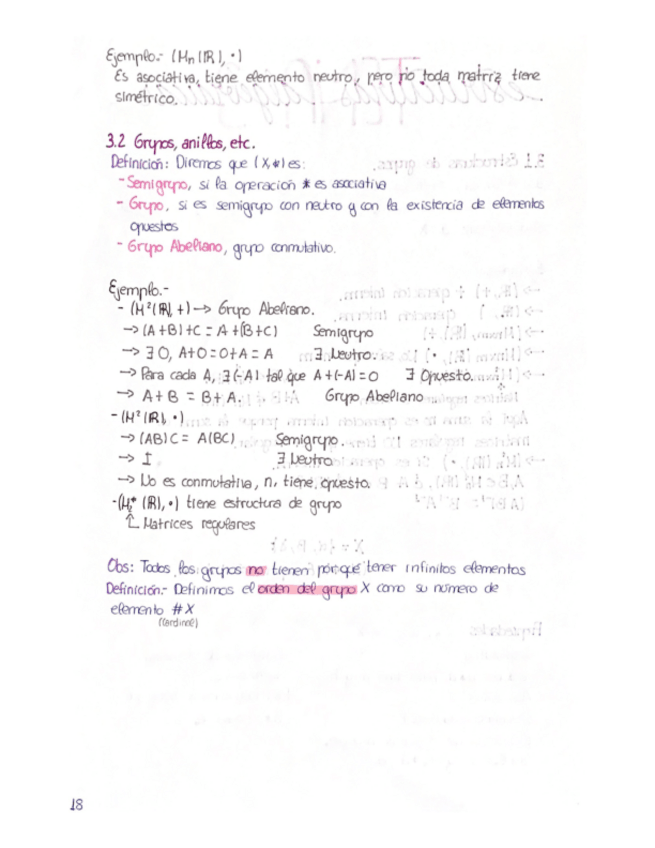 Ejemplo.- (Mn (IR), ·)
Es asociativa, tiene elemento neutro, pero no toda matriz tiene
simétrico.
3.2 Grupos, anillos, etc.
Definición: Diremos que (X,*) es:
- Semigrupo, si la operación * es asociativa
- Grupo, si es semigrupo con neutro y con la existencia de elementos
opuestos
- Grupo Abeliano, grupo conmutativo.
Ejemplo.-
- (M²(IR), +) → Grupo Abeliano.
→ (A+B)+C = A+(B+C) Semigrupo
→ ∃ O, A+O=O+A=A ∃ Neutro.
→ Para cada A, ∃(-A) tal que A+(-A)=O ∃ Opuesto.
→ A+B = B+A. Grupo Abeliano
- (M²(IR), ·)
→ (AB)C = A(BC) Semigrupo.
→ I ∃ Neutro
→ No es conmutativa, ni tiene opuesto.
(IR), ·) tiene estructura de grupo
↑ Matrices regulares
Obs: Todos los grupos no tienen porqué tener infinitos elementos
Definición.- Definimos el orden del grupo X como su número de
elemento #X
(Cardinal)
18